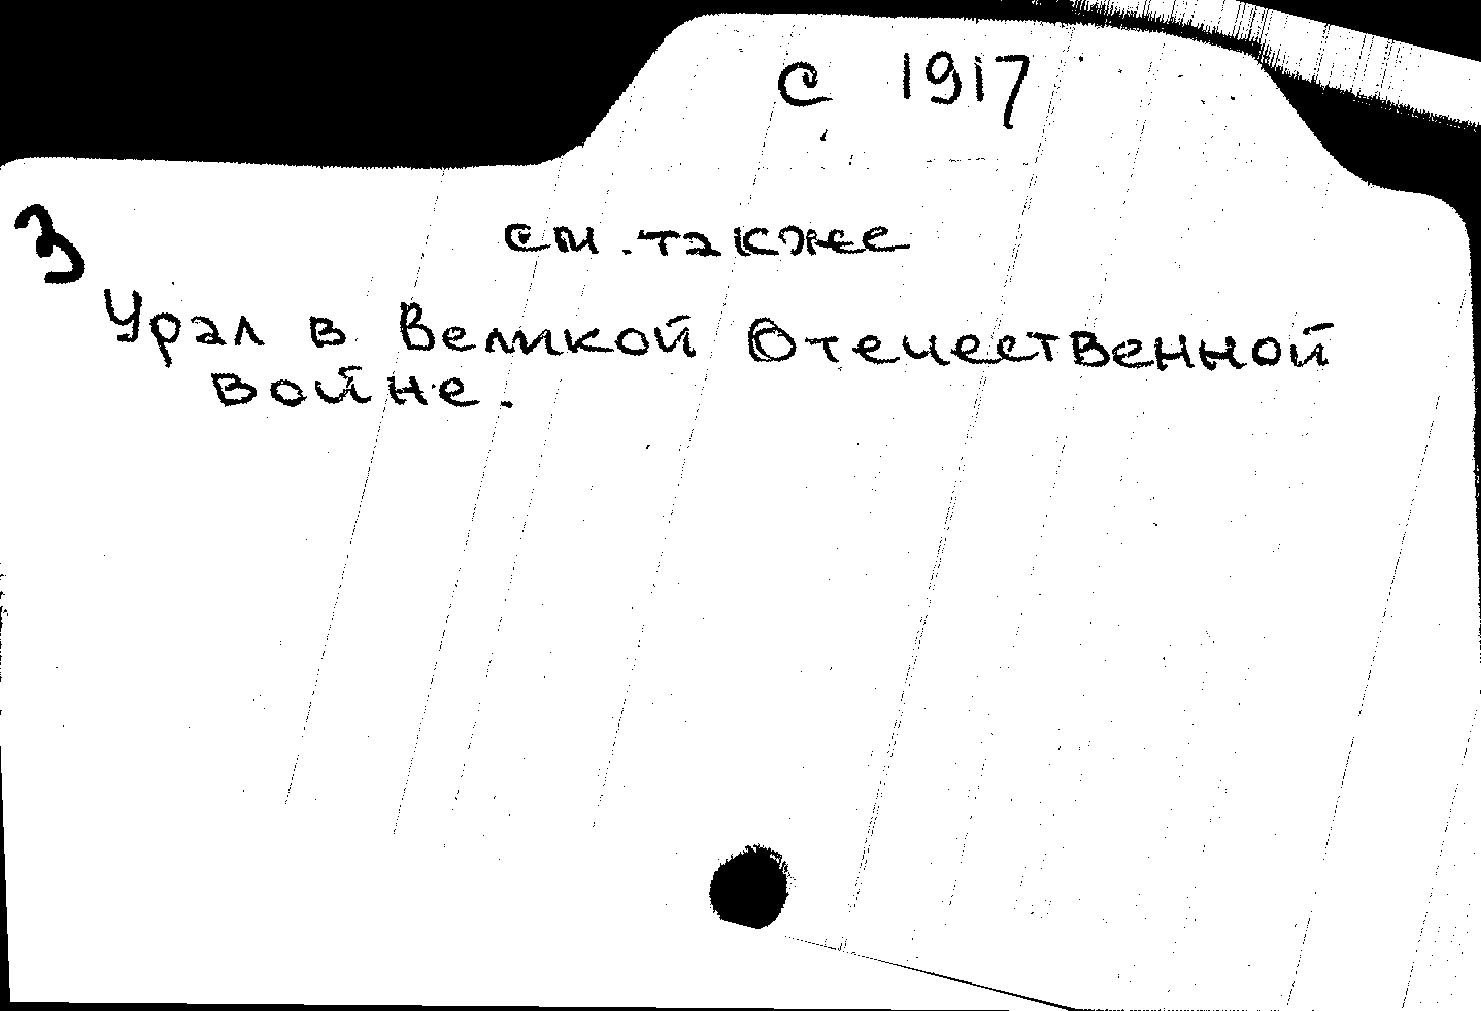 с 1917
3
см. также
Урал в Великой Отечественной
войне.